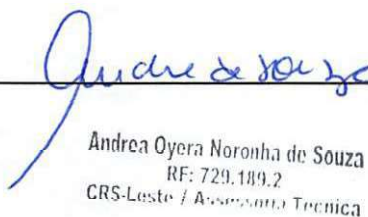 Andre de Souza
Andrea Oyera Noronha de Souza
RF: 729.189.2
CRS-Leste / Assessoria Tecnica